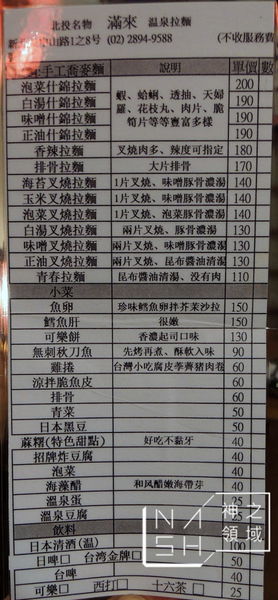 北投名物 滿來 溫泉拉麵
山路1之8號 (02) 2894-9588 (不收服務費
手工蕎麥麵 說明 單價 數
泡菜什錦拉麵 200
白湯什錦拉麵 蝦、蛤蜊、透抽、天婦 190
味噌什錦拉麵 羅、花枝丸、肉片、脆 190
正油什錦拉麵 筍片等等豐富多樣 190
香辣拉麵 叉燒肉多、辣度可指定 180
排骨拉麵 大片排骨 170
海苔叉燒拉麵 1片叉燒、味噌豚骨濃湯 140
玉米叉燒拉麵 1片叉燒、味噌豚骨濃湯 140
泡菜叉燒拉麵 1片叉燒、泡菜豚骨濃湯 140
白湯叉燒拉麵 兩片叉燒、豚骨濃湯 130
味噌叉燒拉麵 兩片叉燒、味噌豚骨濃湯 130
正油叉燒拉麵 兩片叉燒、昆布醬油清湯 130
青春拉麵 昆布醬油清湯、没有肉 110
小菜
魚卵 珍味鱈魚卵拌芥茉沙拉 150
鱈魚肝 很嫩 150
可樂餅 香濃起司口味 130
無刺秋刀魚 先烤再煮、酥軟入味 90
雞捲 台灣小吃腐皮荸薺豬肉卷 60
涼拌脆魚皮 60
排骨 60
青菜 50
日本黑豆 50
蔴糬(特色甜點) 好吃不黏牙 40
招牌炸豆腐 40
泡菜 40
海藻醋 和風醋嫩海帶芽 40
溫泉蛋 25
溫泉豆腐 25
飲料
日本清酒(温) 100
日啤□ 台湾金牌□ 50
台啤 40
可樂□ 西打□ 十六茶□ 25
NASH 神之領域